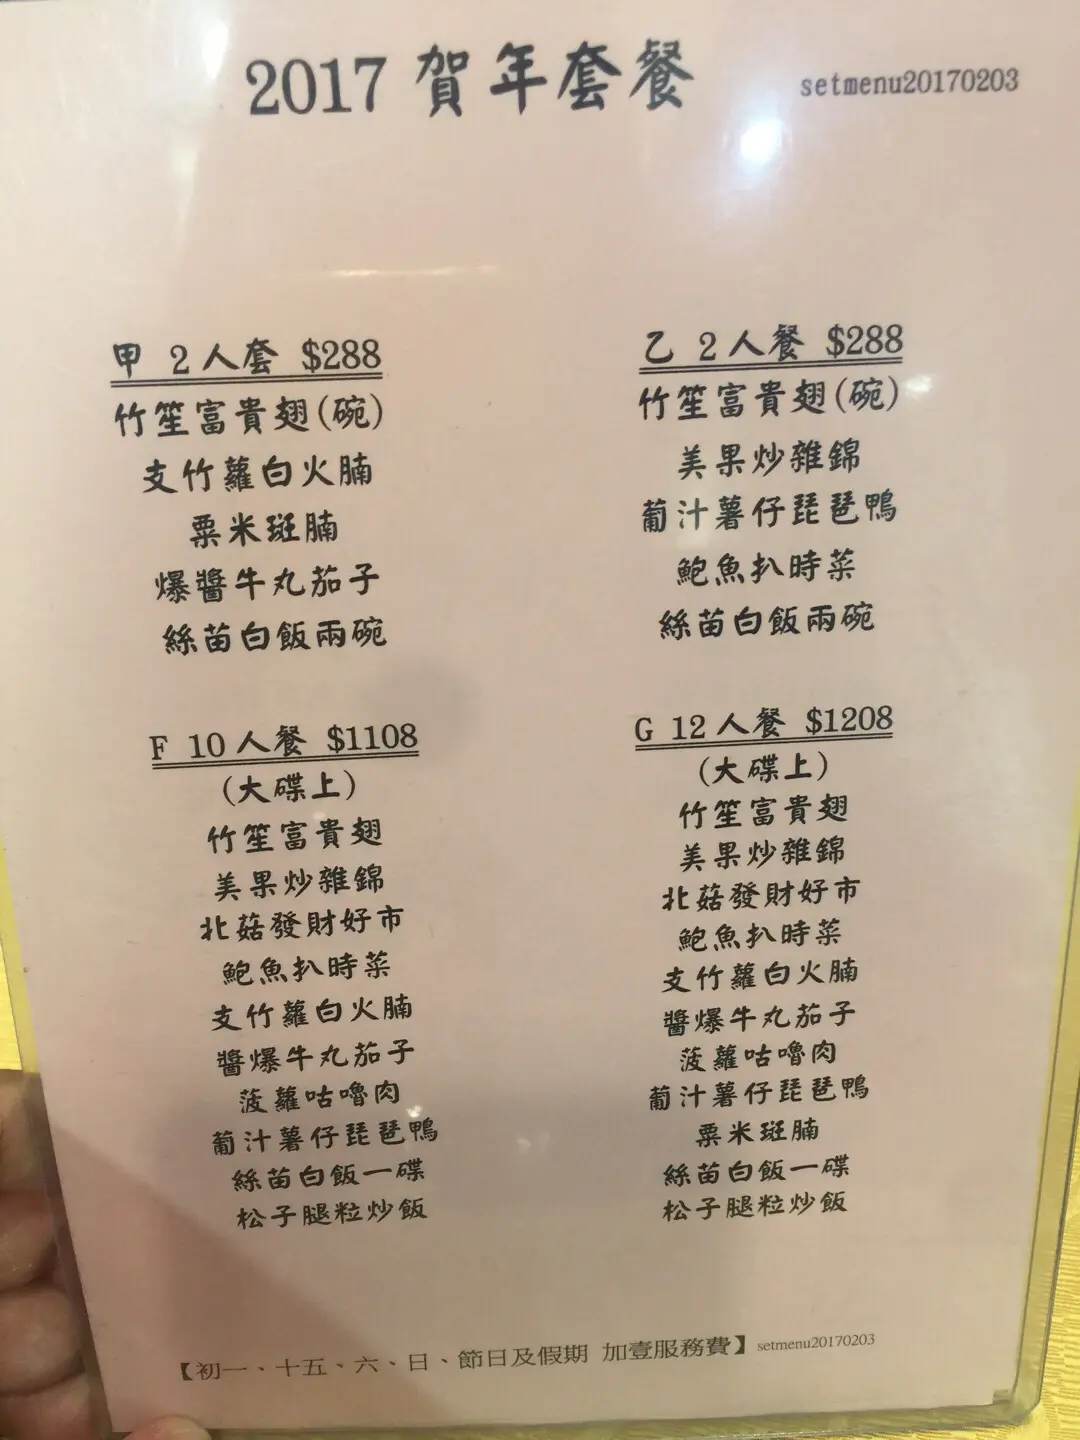 2017 賀年套餐
setmenu20170203
甲 2人套 $288
竹笙富貴翅(碗)
支竹蘿白火腩
粟米斑腩
爆醬牛丸茄子
絲苗白飯兩碗
乙 2人餐 $288
竹笙富貴翅(碗)
美果炒雜錦
葡汁薯仔琵琶鴨
鮑魚扒時菜
絲苗白飯兩碗
F 10人餐 $1108
(大碟上)
竹笙富貴翅
美果炒雜錦
北菇發財好市
鮑魚扒時菜
支竹蘿白火腩
醬爆牛丸茄子
菠蘿咕嚕肉
葡汁薯仔琵琶鴨
絲苗白飯一碟
松子腿粒炒飯
G 12人餐 $1208
(大碟上)
竹笙富貴翅
美果炒雜錦
北菇發財好市
鮑魚扒時菜
支竹蘿白火腩
醬爆牛丸茄子
菠蘿咕嚕肉
葡汁薯仔琵琶鴨
粟米斑腩
絲苗白飯一碟
松子腿粒炒飯
【初一、十五、六、日、節日及假期 加壹服務費】setmenu20170203